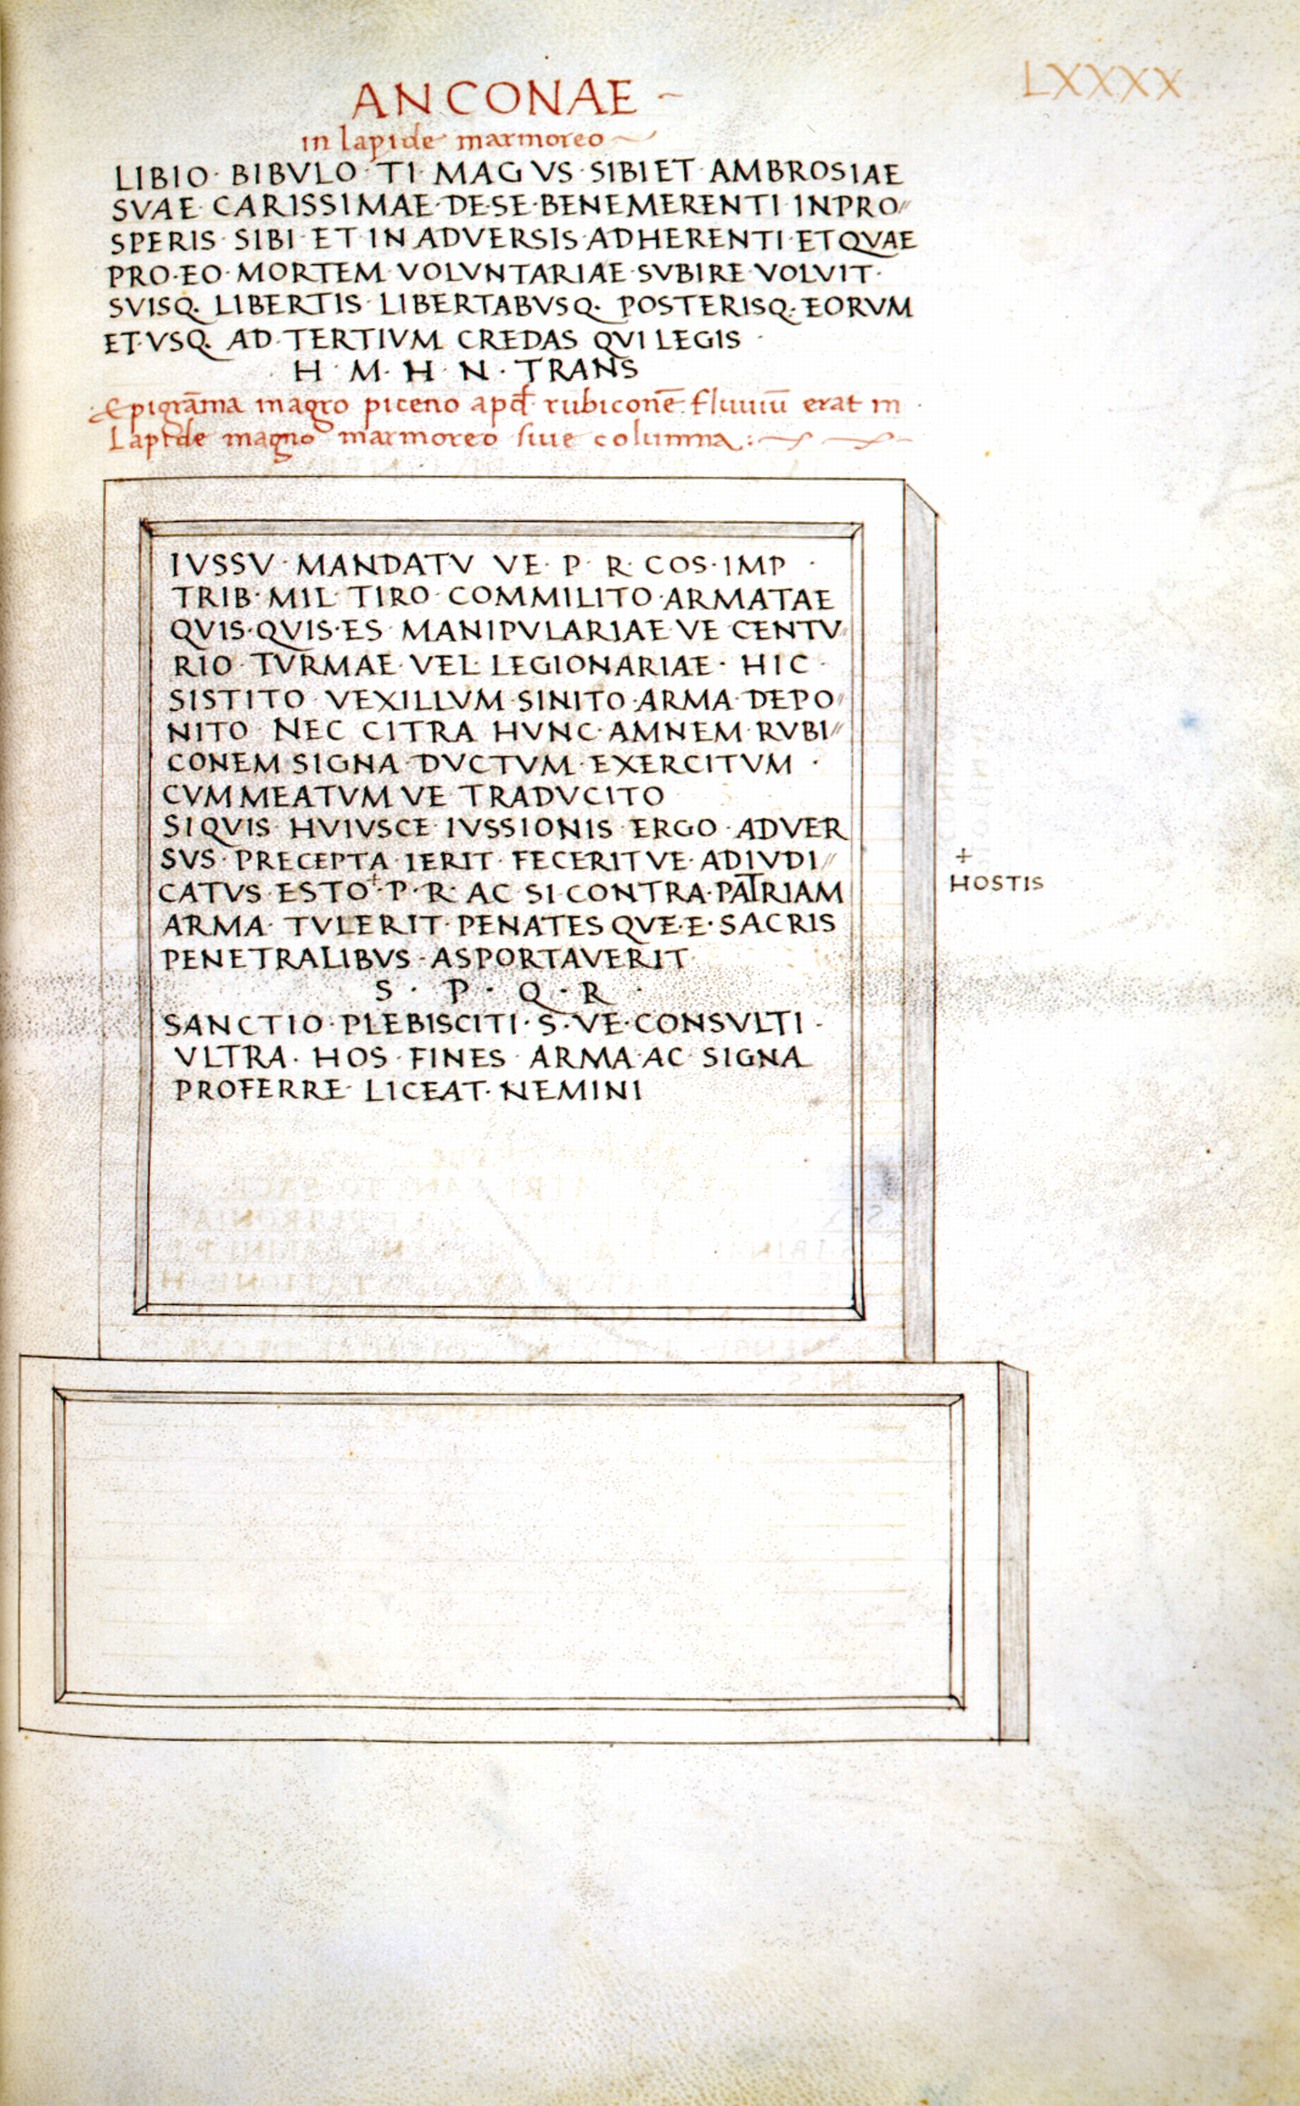 LXXXX
ANCONAE
in lapide marmoreo
LIBIO· BIBVLO·TI·MAGVS·SIBI ET·AMBROSIAE
SVAE·CARISSIMAE·DE·SE·BENEMERENTI·INPRO//
SPERIS·SIBI·ET·IN ADVERSIS·ADHERENTI·ET QVAE
PRO·EO·MORTEM·VOLVNTARIAE·SVBIRE·VOLVIT·
SVISQ·LIBERTIS·LIBERTABVSQ·POSTERISQ·EORVM
ET·VSQ·AD·TERTIVM CREDAS QVI LEGIS·
H·M·H·N·TRANS
Epigrāma magro piceno apđ rubiconē·fluuiū erat in
Lapide magno marmoreo siue columna:
IVSSV·MANDATV VE·P·R·COS·IMP·
TRIB·MIL·TIRO·COMMILITO·ARMATAE
QVIS·QVIS·ES MANIPVLARIAE·VE CENTV
RIO·TVRMAE·VEL·LEGIONARIAE·HIC·
SISTITO·VEXILLVM·SINITO·ARMA·DEPO/
NITO·NEC CITRA HVNC·AMNEM·RVBI//
CONEM SIGNA·DVCTVM·EXERCITVM·
CVM MEATVM VE TRADVCITO
SI QVIS·HVIVSCE·IVSSIONIS·ERGO·ADVER
SVS·PRECEPTA·IERIT·FECERIT VE·ADIVDI//
CATVS·ESTO+·P·R·AC SI·CONTRA·PATRIAM
ARMA·TVLERIT·PENATES QVE·E·SACRIS
PENETRALIBVS·ASPORTAVERIT·
S·P·Q·R·
SANCTIO·PLEBISCITI·S·VE·CONSVLTI·
VLTRA·HOS·FINES·ARMA·AC·SIGNA
PROFERRE·LICEAT·NEMINI
+
HOSTIS